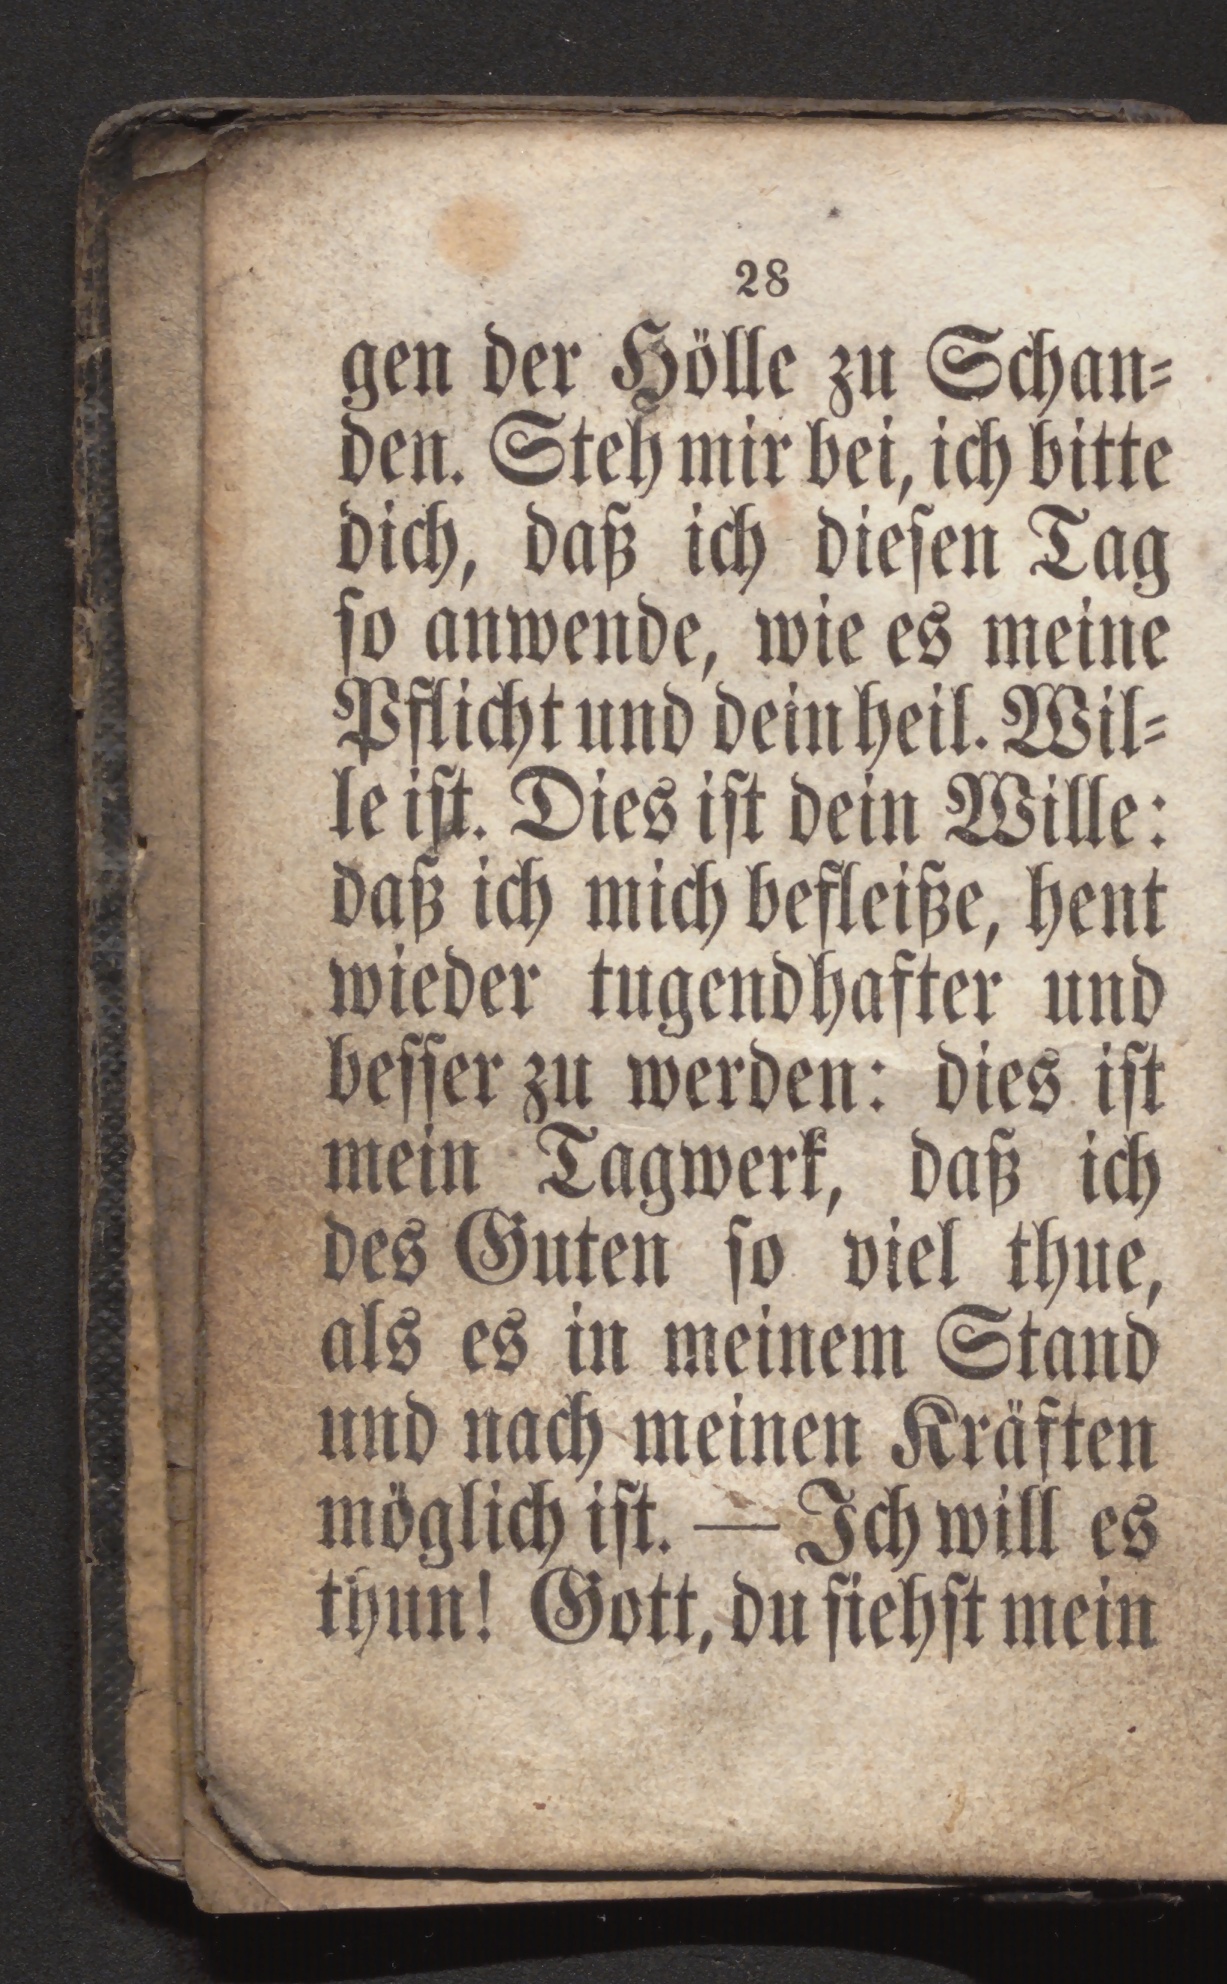 28
gen der Hölle zu Schan-
den. Steh mir bei, ich bitte
dich, daß ich diesen Tag
so anwende, wie es meine
Pflicht und dein heil. Wil-
le ist. Dies ist dein Wille:
daß ich mich befleiße, hent
wieder tugendhafter und
besser zu werden: dies ist
mein Tagwerk, daß ich
des Guten so viel thue,
als es in meinem Stand
und nach meinen Kräften
möglich ist. — Ich will es
thun! Gott, du siehst mein